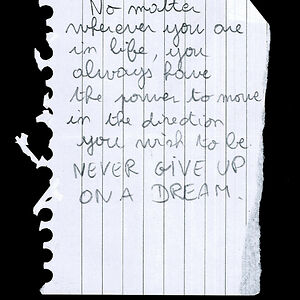 No matter
wherever you are
in life, you
always have
the power to move
in the direction
you wish to be
NEVER GIVE UP
ON A DREAM.